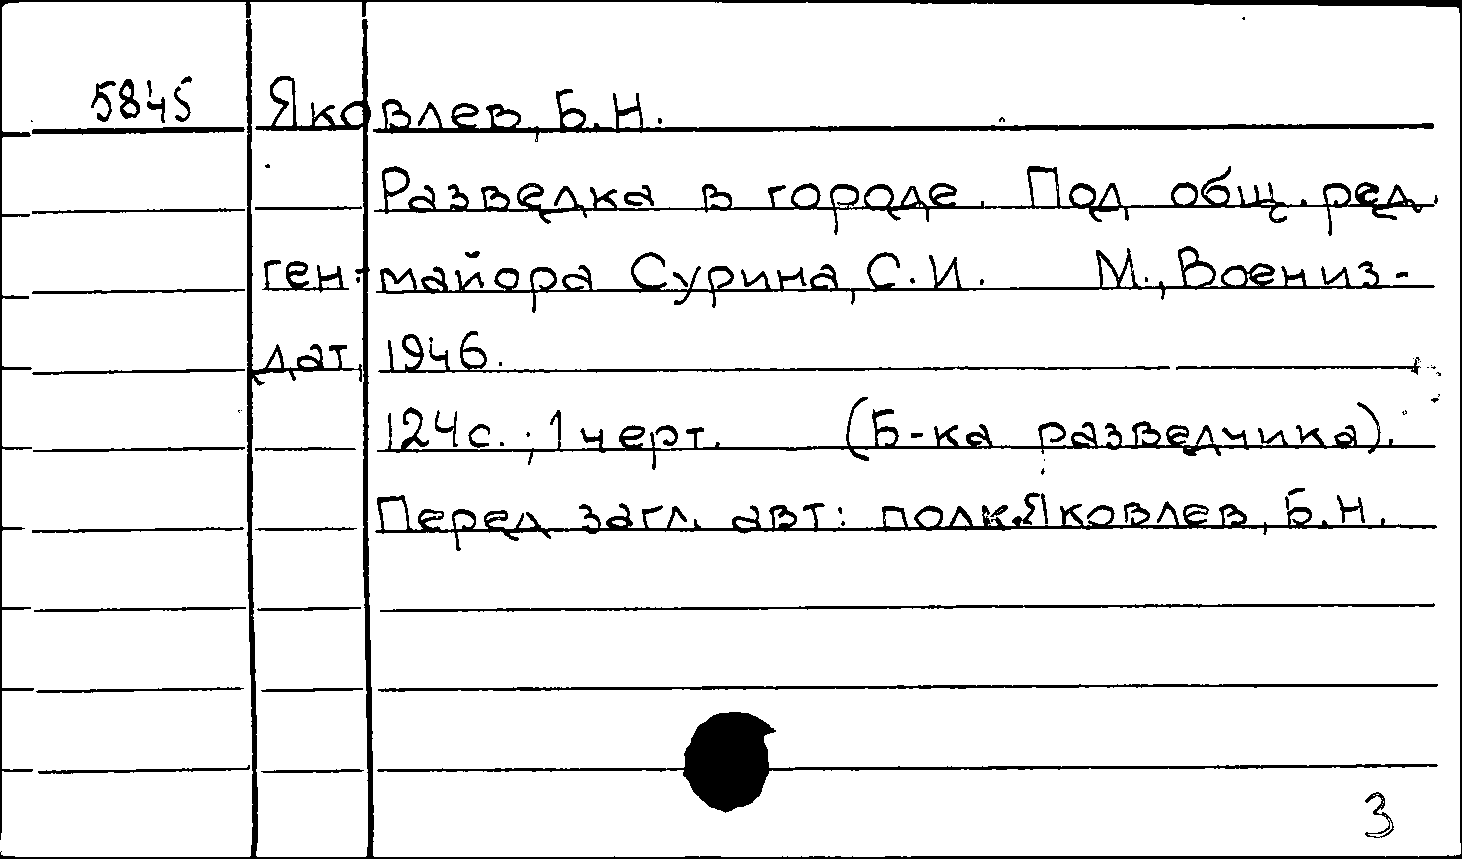 5845 Яковлев, Б.Н.
Разведка в городе. Под общ. ред.
ген.-майора Сурина, С.И. М., Воениз-
дат, 1946.
124с.; 1 черт. (Б-ка разведчика).
Перед загл. авт: полк. Яковлев, Б.Н.
3